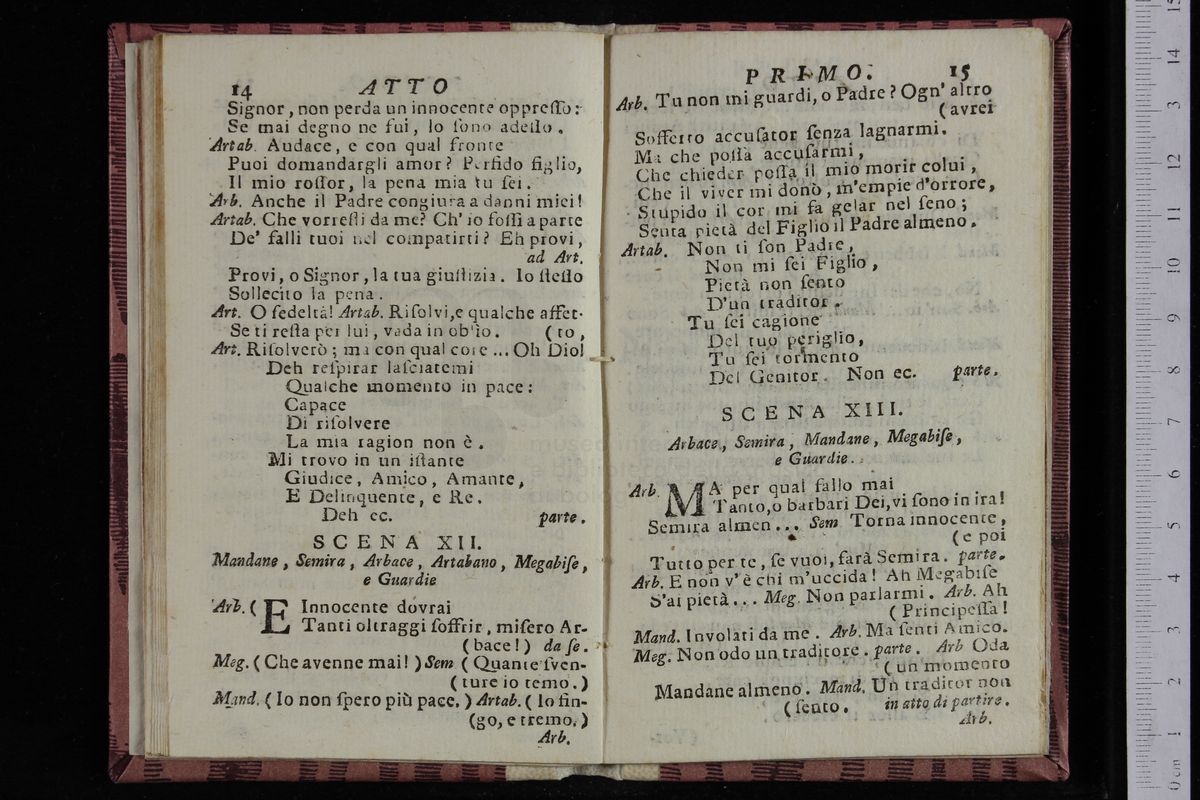 14 ATTO
Signor, non perda un innocente oppreſſo:
Se mai degno ne fui, lo ſono adeſſo.
Artab. Audace, e con qual fronte
Puoi domandargli amor? Perfido figlio,
Il mio roſſor, la pena mia tu ſei.
Arb. Anche il Padre congiura a danni miei!
Artab. Che vorreſti da me? Ch' io foſſi a parte
De' falli tuoi nel compatirti? Eh provi,
ad Art.
Provi, o Signor, la tua giuſtizia. Io ſteſſo
Sollecito la pena.
Art. O fedeltà! Artab. Riſolvi, e qualche affet-
Se ti reſta per lui, vada in obblìo. (to,
Art. Riſolverò; ma con qual core ... Oh Dio!
Deh reſpirar laſciatemi
Qualche momento in pace:
Capace
Di riſolvere
La mia ragion non è.
Mi trovo in un iſtante
Giudice, Amico, Amante,
E Delinquente, e Re.
Deh ec. parte.
SCENA XII.
Mandane, Semira, Arbace, Artabano, Megabiſe,
e Guardie
Arb. (E Innocente dovrai
Tanti oltraggi ſoffrir, miſero Ar-
(bace!) da ſe.
Meg. (Che avenne mai!) Sem (Quante ſven-
(ture io temo.)
Mand. (Io non ſpero più pace.) Artab. (Io fin-
(go, e tremo.)
Arb.
PRIMO. 15
Arb. Tu non mi guardi, o Padre? Ogn' altro
(avrei
Sofferto accuſator ſenza lagnarmi.
Ma che poſſa accuſarmi,
Che chieder poſſa il mio morir colui,
Che il viver mi donò, m'empie d'orrore,
Stupido il cor mi fa gelar nel ſeno;
Senta pietà del Figlio il Padre almeno.
Artab. Non ti ſon Padre,
Non mi ſei Figlio,
Pietà non ſento
D'un traditor.
Tu ſei cagione
Del tuo periglio,
Tu ſei tormento
Del Genitor. Non ec. parte.
SCENA XIII.
Arbace, Semira, Mandane, Megabiſe,
e Guardie.
Arb. MA per qual fallo mai
Tanto, o barbari Dei, vi ſono in ira!
Semira almen... Sem Torna innocente,
(e poi
Tutto per te, ſe vuoi, farà Semira. parte.
Arb. E non v' è chi m'uccida! Ah Megabiſe
S'ai pietà... Meg. Non parlarmi. Arb. Ah
(Principeſſa!
Mand. Involati da me. Arb. Ma ſenti Amico.
Meg. Non odo un traditore. parte. Arb Oda
(un momento
Mandane almeno. Mand. Un traditor non
(ſento. in atto di partire.
Arb.